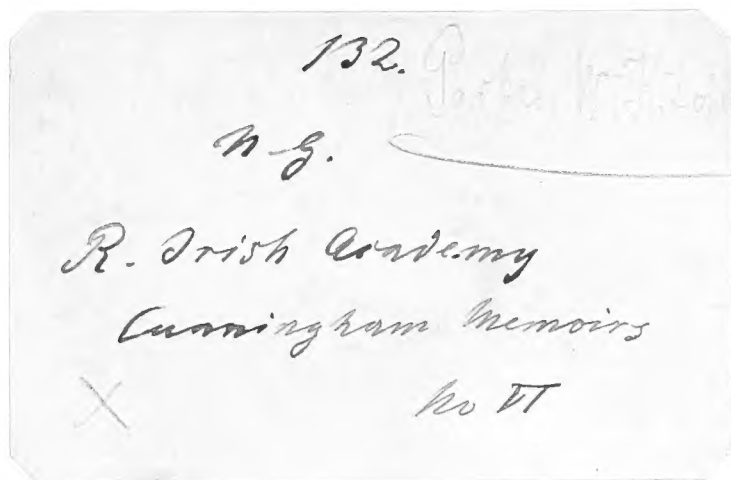 132.
N-G.
R. Irish Academy
Cunningham Memoirs
No VI
X